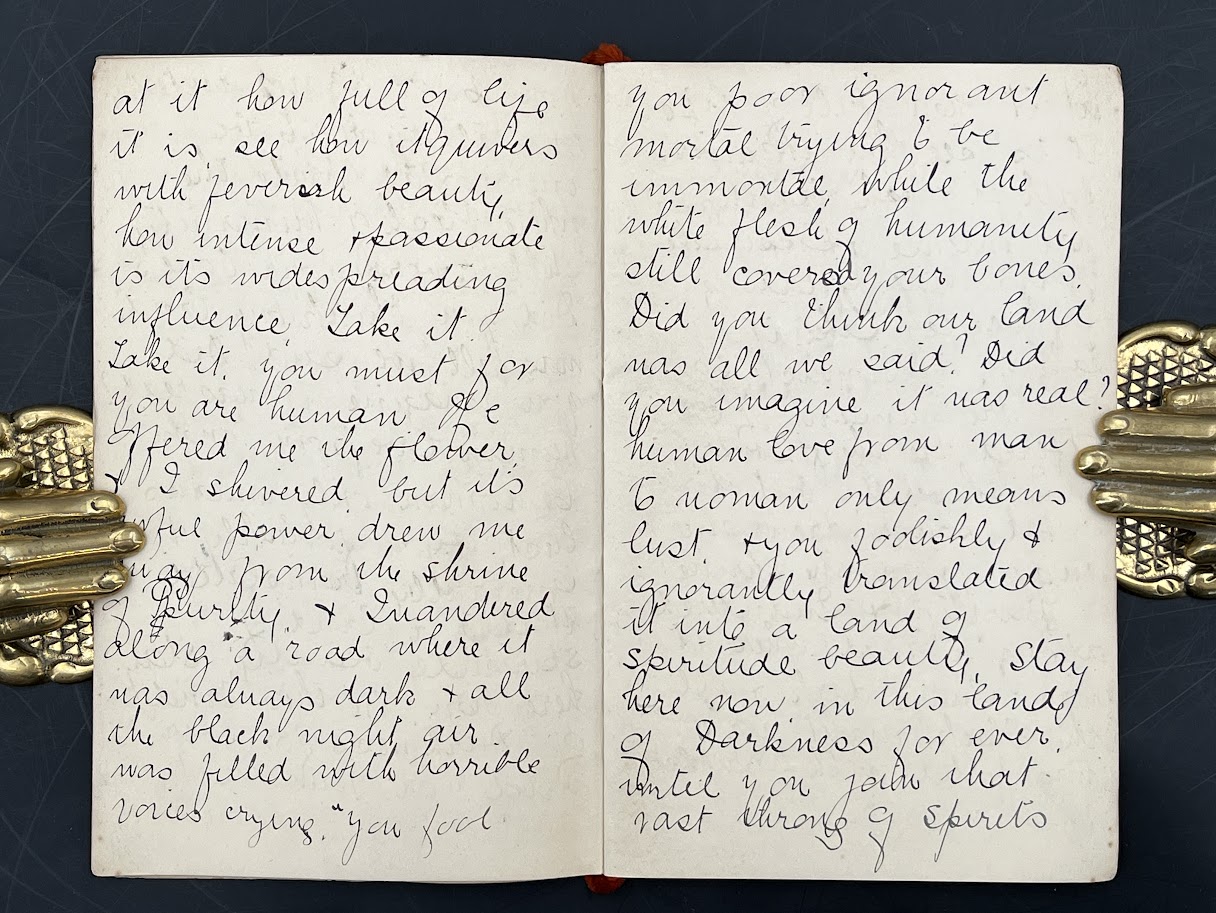 at it how full of life
it is, see how it quivers
with feverish beauty,
how intense & passionate
is it's widespreading
influence, Take it.
Take it, you must for
you are human. He
offered me the flower,
& I shivered, but it's
wful power, drew me
way from the shrine
of Purity, & I wandered
along a road where it
was always dark & all
the black night air
was filled with horrible
voices crying, "you fool
you poor ignorant
mortal trying to be
immortal, while the
white flesh of humanity
still covered your bones.
Did you think our land
was all we said? Did
you imagine it was real?
human love from man
to woman only means
lust & you foolishly &
ignorantly translated
it into a land of
beauty, Stay
here now in this land
of Darkness for ever,
until you join that
vast throng of Spirits